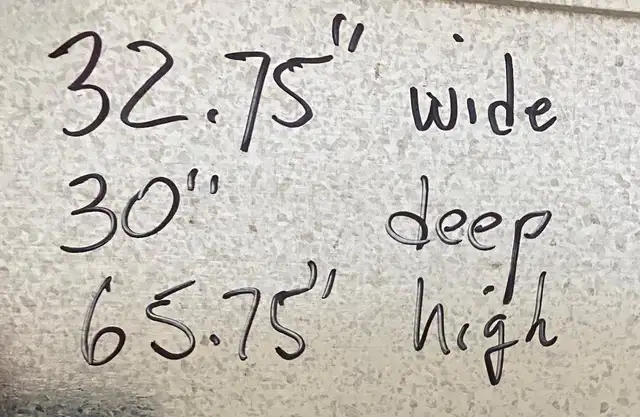 32.75" wide
30" deep
65.75" high